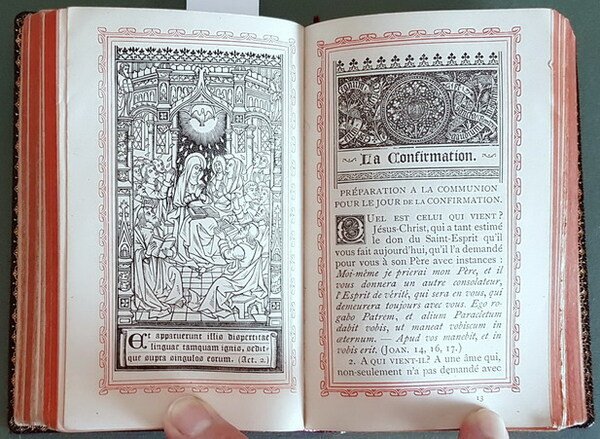 Et apparuerunt illis dispertitae
linguae tamquam ignis, sedit-
que supra singulos eorum. (Act. 2.)
La Confirmation.
PRÉPARATION A LA COMMUNION
POUR LE JOUR DE LA CONFIRMATION.
QUEL EST CELUI QUI VIENT?
Jésus-Christ, qui a tant estimé
le don du Saint-Esprit qu'il
vous fait aujourd'hui, qu'il l'a demandé
pour vous à son Père avec instances :
Moi-même je prierai mon Père, et il
vous donnera un autre consolateur,
l'Esprit de vérité, qui sera en vous, qui
demeurera toujours avec vous. Ego ro-
gabo Patrem, et alium Paracletum
dabit vobis, ut maneat vobiscum in
æternum. — Apud vos manebit, et in
vobis erit. (JOAN. 14, 16, 17.)
2. A QUI VIENT-IL? A une âme qui,
non-seulement n'a pas demandé avec
13